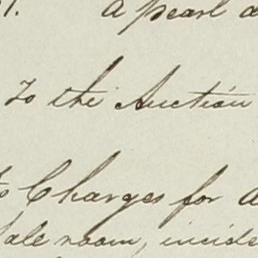 a pearl
To the Auction
to Charges for
Sale room, incide